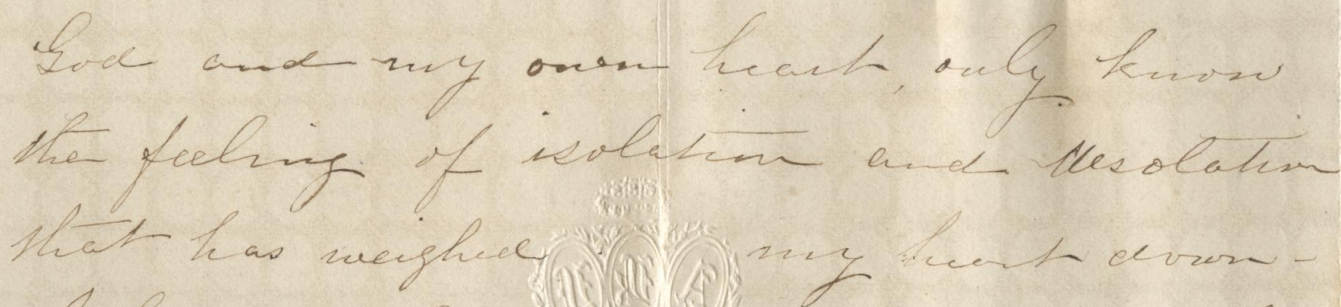 God and my own heart, only know
the feeling of isolation and desolation
that has weighed my heart down -